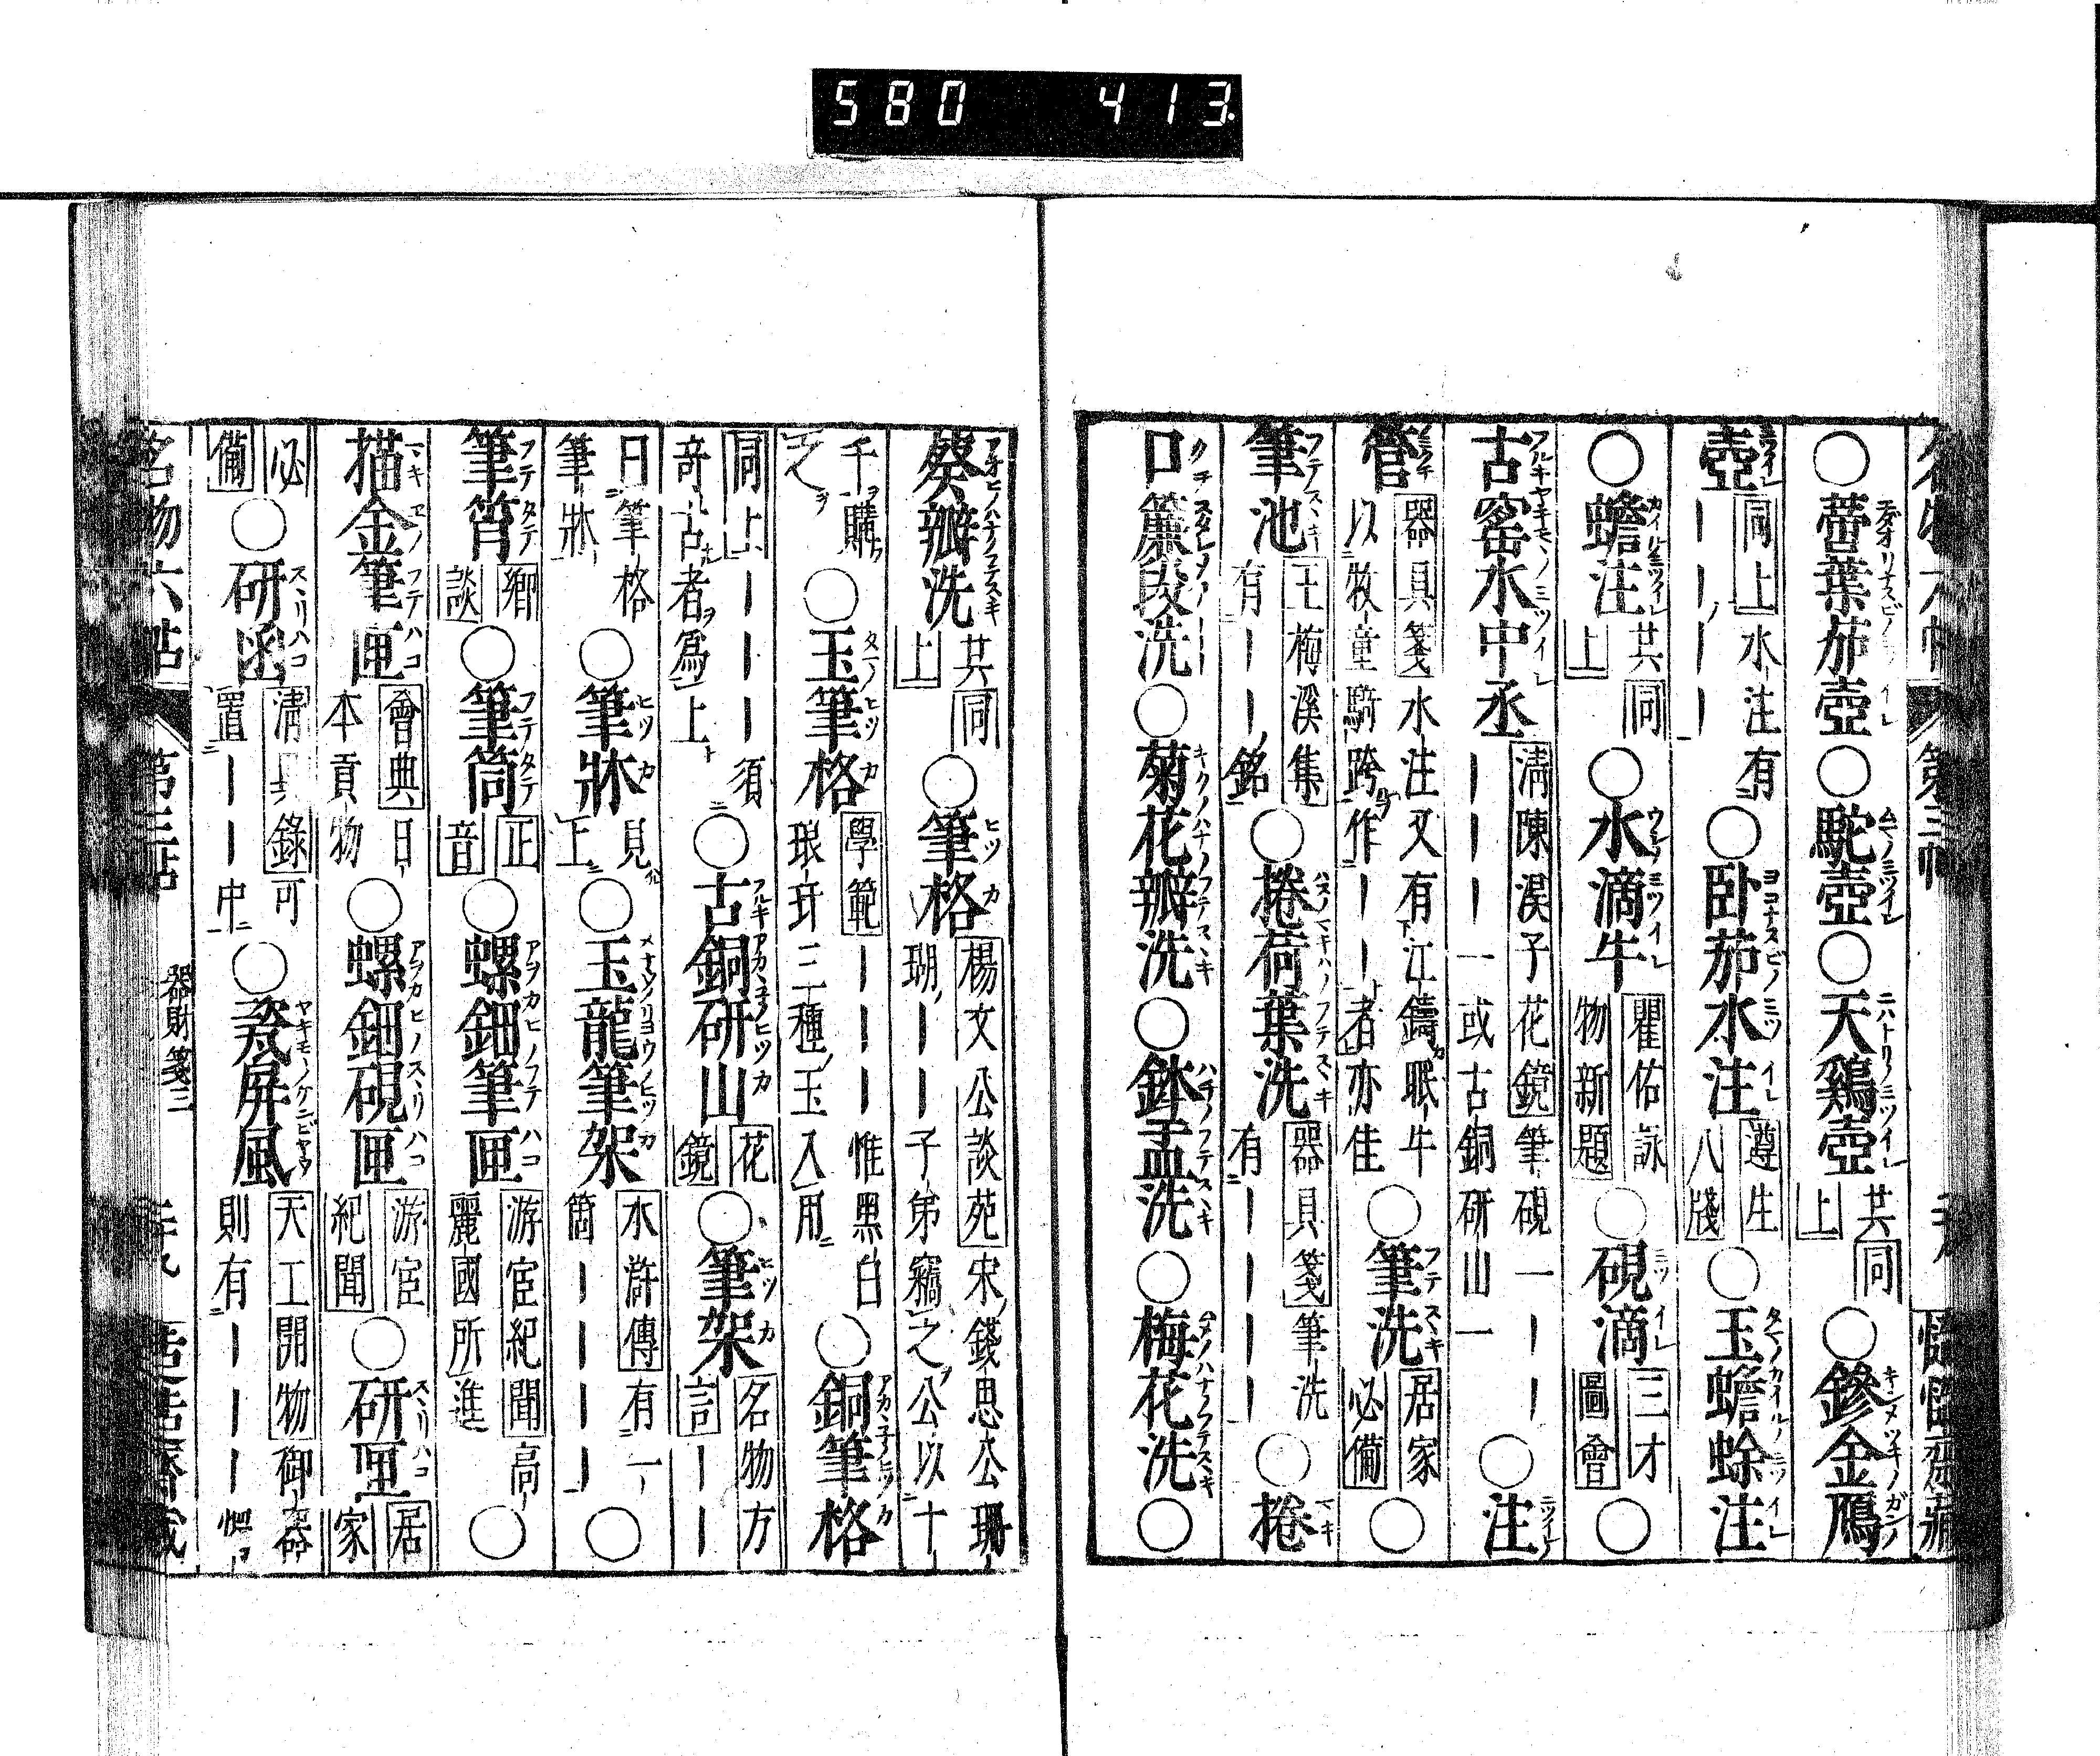 580 413
○蕾葉茄壺○駝壺○天鷄壺共同上○鏒金鴈
壺同上水注有｜｜｜○卧茄水注遵生八牋○玉蟾蜍注
○蟾注共同上○水滴牛瞿佑詠物新題○硯滴三才圖會○
古窑水中丞清陳淏子花鏡筆硯一｜｜｜｜｜一或古銅研山一○注
管器具箋水注又有江鑄眠牛以牧童騎跨作｜｜者亦佳○筆洗居家必備○
筆池王梅溪集有｜｜銘○捲荷葉洗器具箋筆洗有｜｜｜｜○捲
口簾段洗○菊花瓣洗○鉢盂洗○梅花洗○
葵瓣洗共同上○筆格楊文公談苑宋錢思公珊瑚｜｜子弟竊之公以十
千購之○玉筆格學範｜｜｜惟黑白琅玕三種玉入用○銅筆格
同上｜｜｜須奇古者爲上○古銅研山花鏡○筆架名物方言｜｜
曰筆格筆牀○筆牀見上○玉龍筆架水滸傳有一箇｜｜｜｜○
筆筲鄉談○筆筒正音○螺鈿筆匣游宦紀聞高麗國所進○
描金筆匣會典日本貢物○螺鈿硯匣游宦紀聞○研匣居家
必備○研函清錄可置｜｜中○瓷屏風天工開物御器則有｜｜｜
名物六帖 第三帖 器財箋二